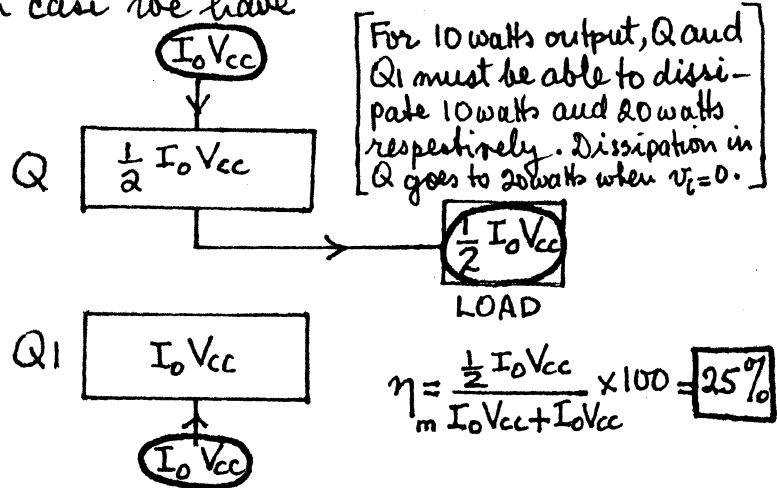 n case we have
I₀V_CC
[For 10 watts output, Q and
Q1 must be able to dissi-
pate 10 watts and 20 watts
respectively. Dissipation in
Q goes to 20 watts when v_i=0.]
Q
1/2 I₀V_CC
1/2 I₀V_CC
LOAD
Q1
I₀V_CC
η_m = (1/2 I₀V_CC)/(I₀V_CC+I₀V_CC) ×100 = 25%
I₀V_CC